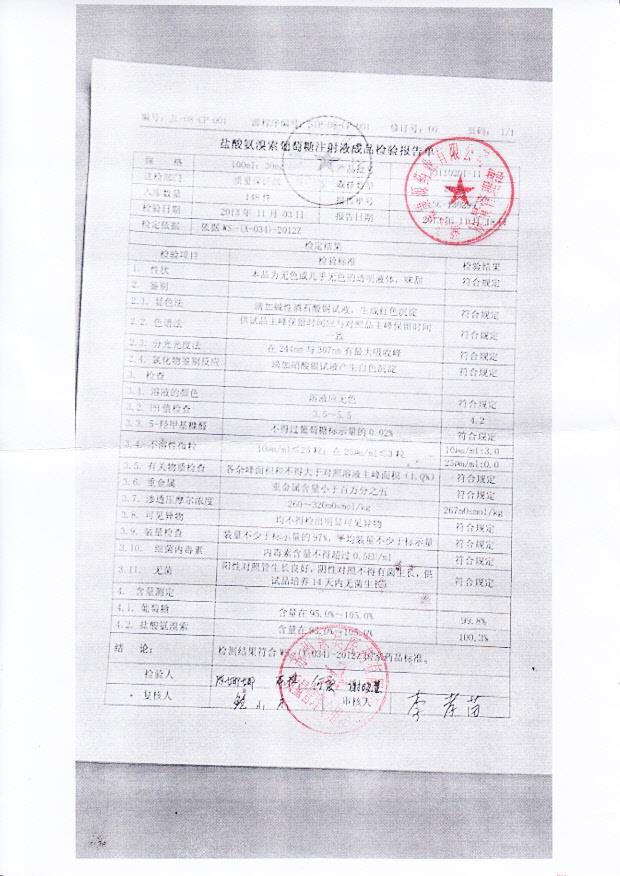 编号: JL-08-CP-001 修订号: 00 页码: 1/1
盐酸氨溴索葡萄糖注射液成品检验报告单
规 格 100ml: 30mg 产品批号
送检部门 质量保证部 取样数量
入库数量 148件 报告单号
检验日期 2013年11月03日 报告日期
检定依据 依据WS-(X-034)-2012Z
检定结果
检验项目 检验标准 检验结果
1. 性状 本品为无色或几乎无色的透明液体，味甜 符合规定
2. 鉴别
2.1. 显色法 滴加碱性酒石酸铜试液，生成红色沉淀 符合规定
2.2. 色谱法 供试品主峰保留时间应与对照品主峰保留时间
一致 符合规定
2.3. 分光光度法 在244nm与307nm有最大吸收峰 符合规定
2.4. 氯化物鉴别反应 滴加硝酸银试液产生白色沉淀 符合规定
3. 检查
3.1. 溶液的颜色 溶液应无色 符合规定
3.2. PH值检查 3.5~5.5 4.2
3.3. 5-羟甲基糠醛 不得过葡萄糖标示量的0.02% 符合规定
3.4. 不溶性微粒 10μm/ml≤25粒; 在25μm/ml≤3粒 10μm/ml:3.0
25μm/ml:0.0
3.5. 有关物质检查 各杂峰面积和不得大于对照溶液主峰面积（1.0%） 符合规定
3.6. 重金属 重金属含量小于百万分之五 符合规定
3.7. 渗透压摩尔浓度 260~320mOsmol/kg 267mOsmol/kg
3.8. 可见异物 均不得检出明显可见异物 符合规定
3.9. 装量检查 装量不少于标示量的97%，平均装量不少于标示量 符合规定
3.10. 细菌内毒素 内毒素含量不得超过0.5EU/ml 符合规定
3.11. 无菌 阳性对照管生长良好，阴性对照不得有菌生长，供
试品培养14天内无菌生长 符合规定
4. 含量测定
4.1. 葡萄糖 含量在95.0%~105.0% 99.8%
4.2. 盐酸氨溴索 含量在95.0%~105.0% 100.3%
结 论: 检测结果符合WS-(X-034)-2012Z国家药品标准。
检验人
复核人 审核人